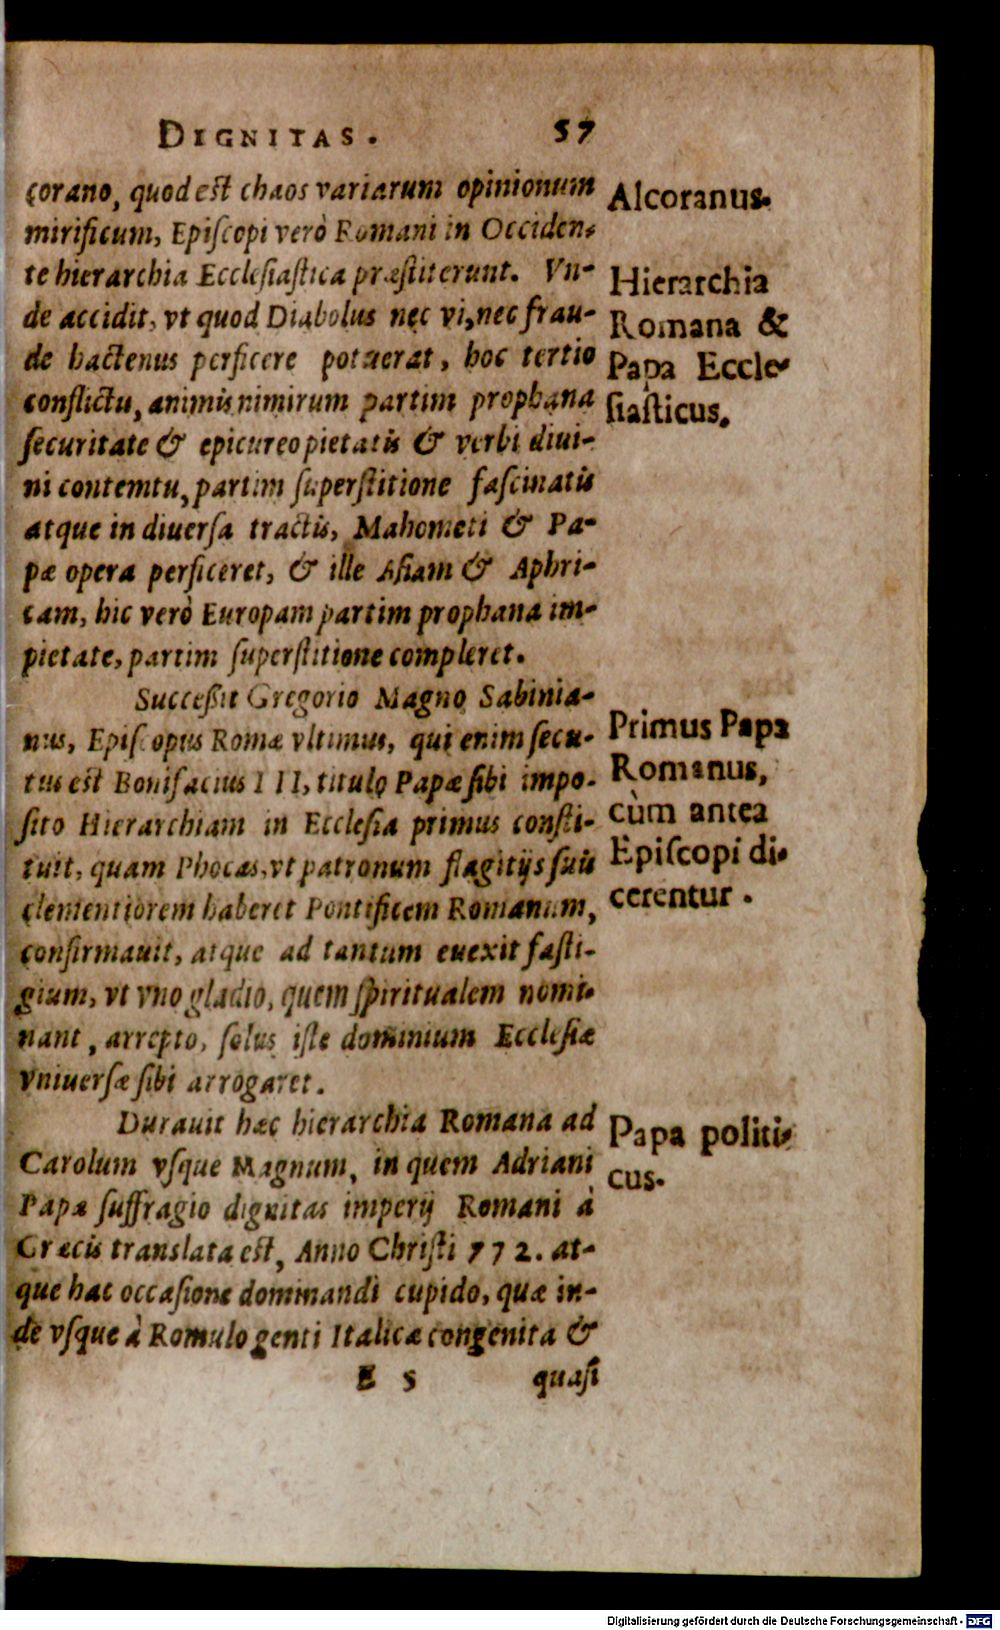 DIGNITAS. 57
corano, quod est chaos variarum opinionum
mirificum, Epiſcopi verò Romani in Occiden-
te hierarchia Eccleſiaſtica præſtiterunt. Vn-
de accidit, vt quod Diabolus nec vi, nec frau-
de hactenus perficere potuerat, hoc tertio
conflictu, animis nimirum partim prophana
ſecuritate & epicureo pietatis & verbi diui-
ni contemtu, partim ſuperſtitione faſcinatis
atque in diuerſa tractis, Mahometi & Pa-
pæ opera perficeret, & ille Aſiam & Aphri-
cam, hic verò Europam partim prophana im-
pietate, partim ſuperſtitione compleret.
Succeßit Gregorio Magno Sabinia-
nus, Epiſcopus Romæ vltimus, qui enim ſecu-
tus est Bonifacius III, titulo Papæ ſibi impo-
ſito Hierarchiam in Eccleſia primus conſti-
tuit, quam Phocas, vt patronum flagitijs ſuis
clementiorem haberet Pontificem Romanum,
confirmauit, atque ad tantum euexit faſti-
gium, vt vno gladio, quem ſpiritualem nomi-
nant, arrepto, ſolus iſte dominium Eccleſiæ
vniuerſæ ſibi arrogaret.
Durauit hæc hierarchia Romana ad
Carolum vſque Magnum, in quem Adriani
Papæ ſuffragio dignitas imperij Romani à
Græcis translata est, Anno Chriſti 772. at-
que hac occaſione dominandi cupido, quæ in-
de vſque à Romulo genti Italicæ congenita &
E 5 quaſi
Alcoranus.
Hierarchia
Romana &
Papa Eccle-
ſiaſticus.
Primus Papa
Romanus,
cùm antea
Epiſcopi di-
cerentur.
Papa politi-
cus.
Digitalisierung gefördert durch die Deutsche Forschungsgemeinschaft - DFG